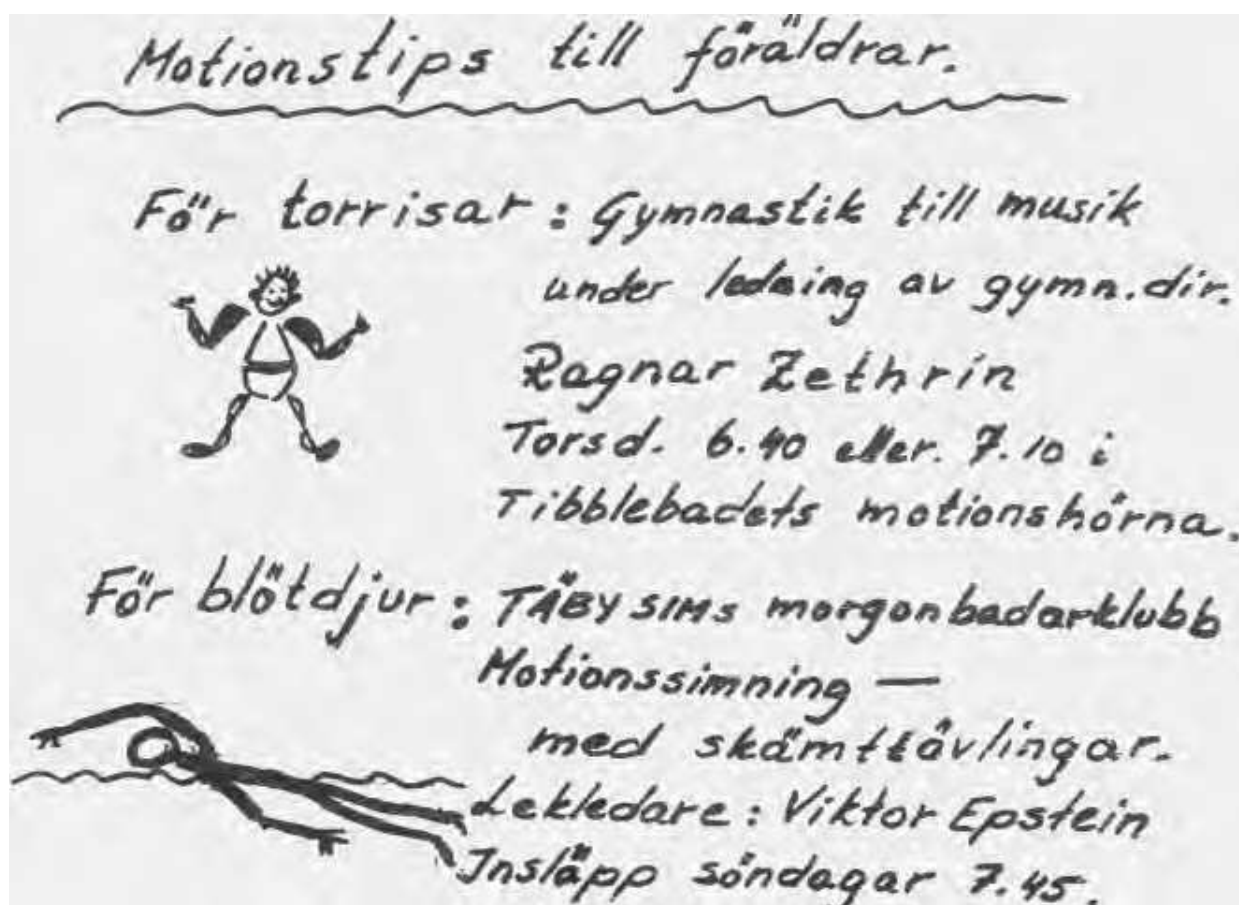 Motionstips till föräldrar.
För torrisar: Gymnastik till musik
under ledning av gymn.dir.
Ragnar Zethrin
Torsd. 6.40 eller. 7.10 i
Tibblebadets motionshörna.
För blötdjur: TÄBY SIMs morgonbadarklubb
Motionssimning —
med skämttävlingar.
Lekledare: Viktor Epstein
Insläpp söndagar 7.45.